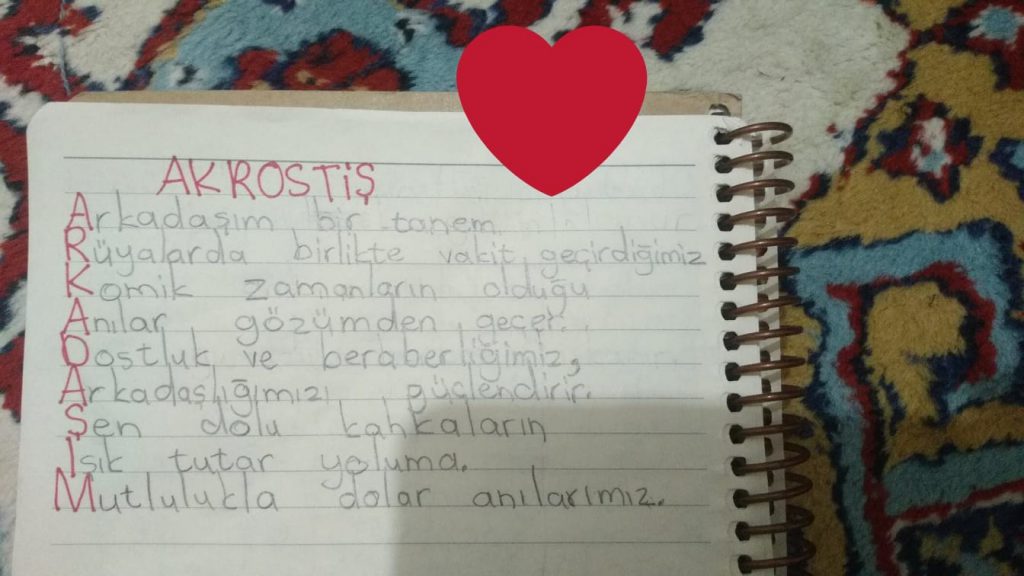 AKROSTİŞ
Arkadaşım bir tanem
Rüyalarda birlikte vakit geçirdiğimiz
Komik zamanların olduğu
Anılar gözümden geçer.
Dostluk ve beraberliğimiz,
Arkadaşlığımızı güçlendirir.
Şen dolu kahkaların
Işık tutar yoluma.
Mutlulukla dolar anılarımız.